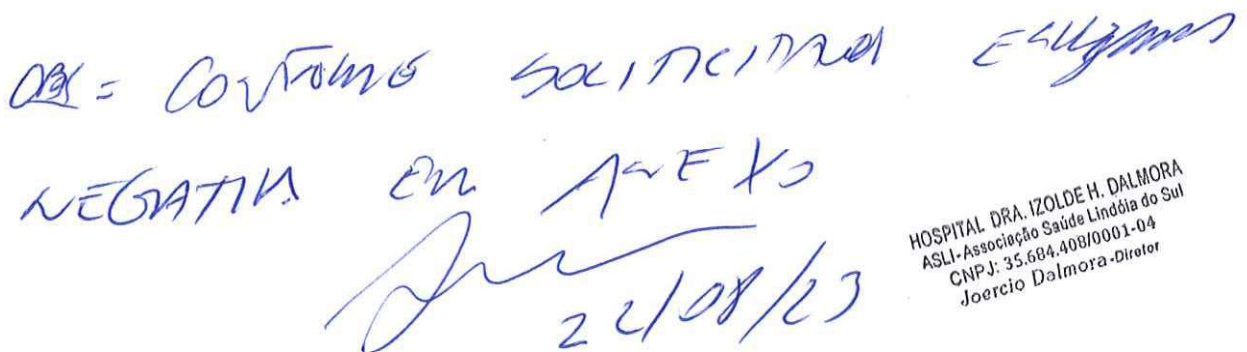 OBS = CONFORME SOLICITADA
NEGATIVA EM ANEXO
22/08/23
HOSPITAL DRA. IZOLDE H. DALMORA
ASLI-Associação Saúde Lindóia do Sul
CNPJ: 35.684.408/0001-04
Joercio Dalmora-Diretor